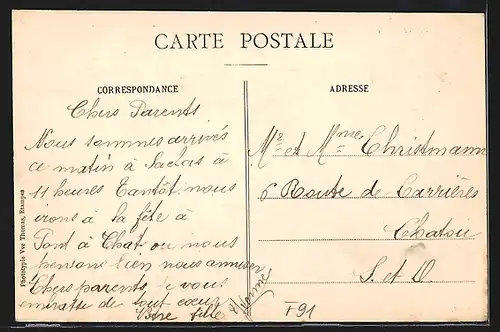 CARTE POSTALE
CORRESPONDANCE
Chers Parents
Nous sommes arrivés
ce matin à Saclas à
11 heures Tantôt nous
irons à la fête à
Pont à Chat ou nous
pensons bien nous amuser
Chers parents, je vous
embrasse de tout cœur
Votre fille
ADRESSE
Mr et Mme Christmann
6 Route de Carrières
Chatou
S. et O.
F91
Phototypie Vve Thomas, Etampes